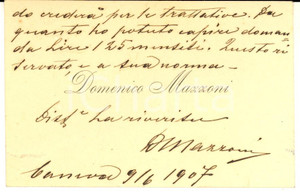 do crederà per le trattative. Da
quanto ho potuto capire doman
da Lire 125 mensili. Questo ri
servato e a sua norma –
Domenico Mazzoni
Dist. la riverisco
DMazzoni
9/6 1907